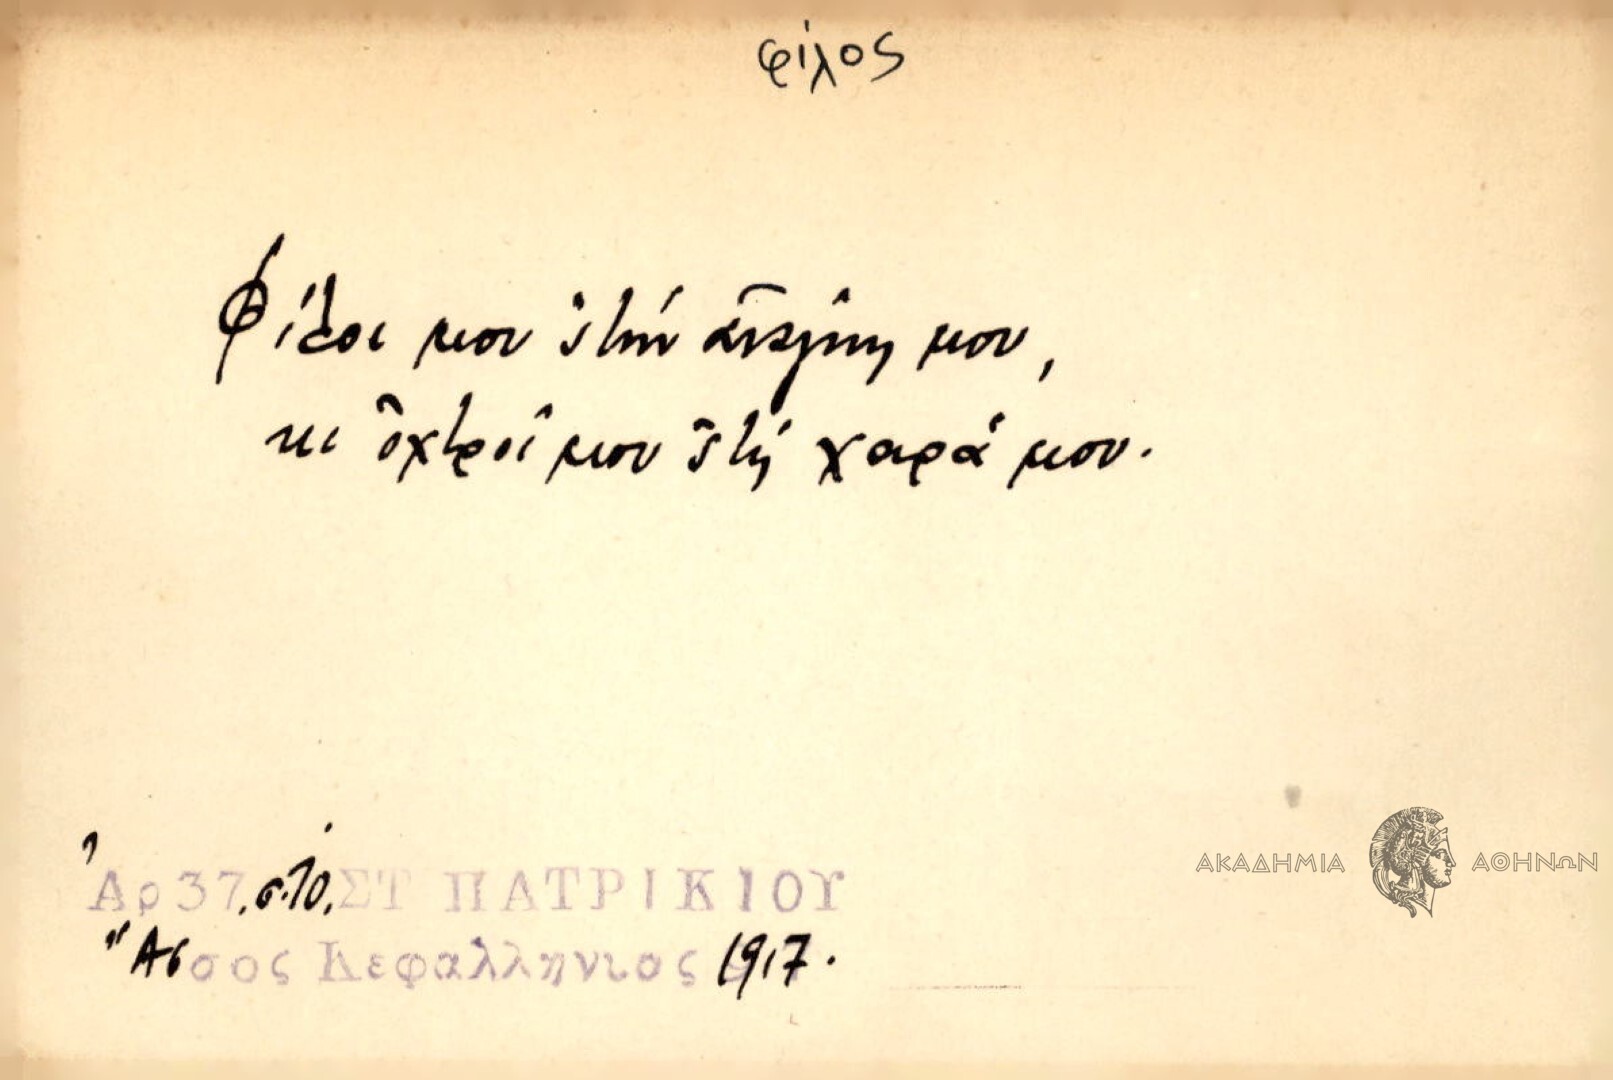 φίλος
Φίλοι μου 'ς τὴν ἀνάγκη μου,
κι ὀχτροί μου 'ς τὴ χαρά μου.
Ἀρ 37. σ. 10. ΣΤ ΠΑΤΡΙΚΙΟΥ
Ἄσσος Κεφαλληνιας 1917.
ΑΚΑΔΗΜΙΑ ΑΘΗΝΩΝ